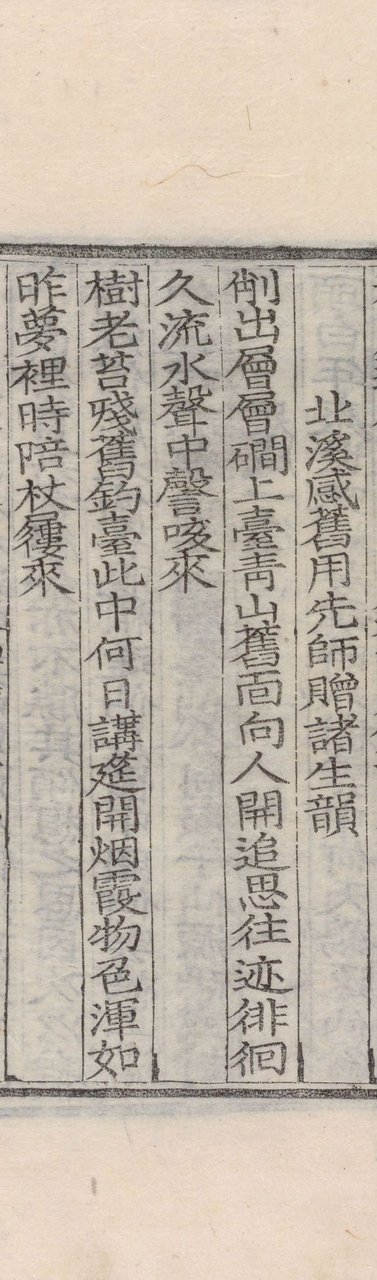 北溪感舊用先師贈諸生韻
削出層層磵上臺靑山舊面向人開追思往迹徘徊
久流水聲中謦咳來
樹老苔殘舊釣臺此中何日講筵開烟霞物色渾如
昨夢裡時陪杖屨來